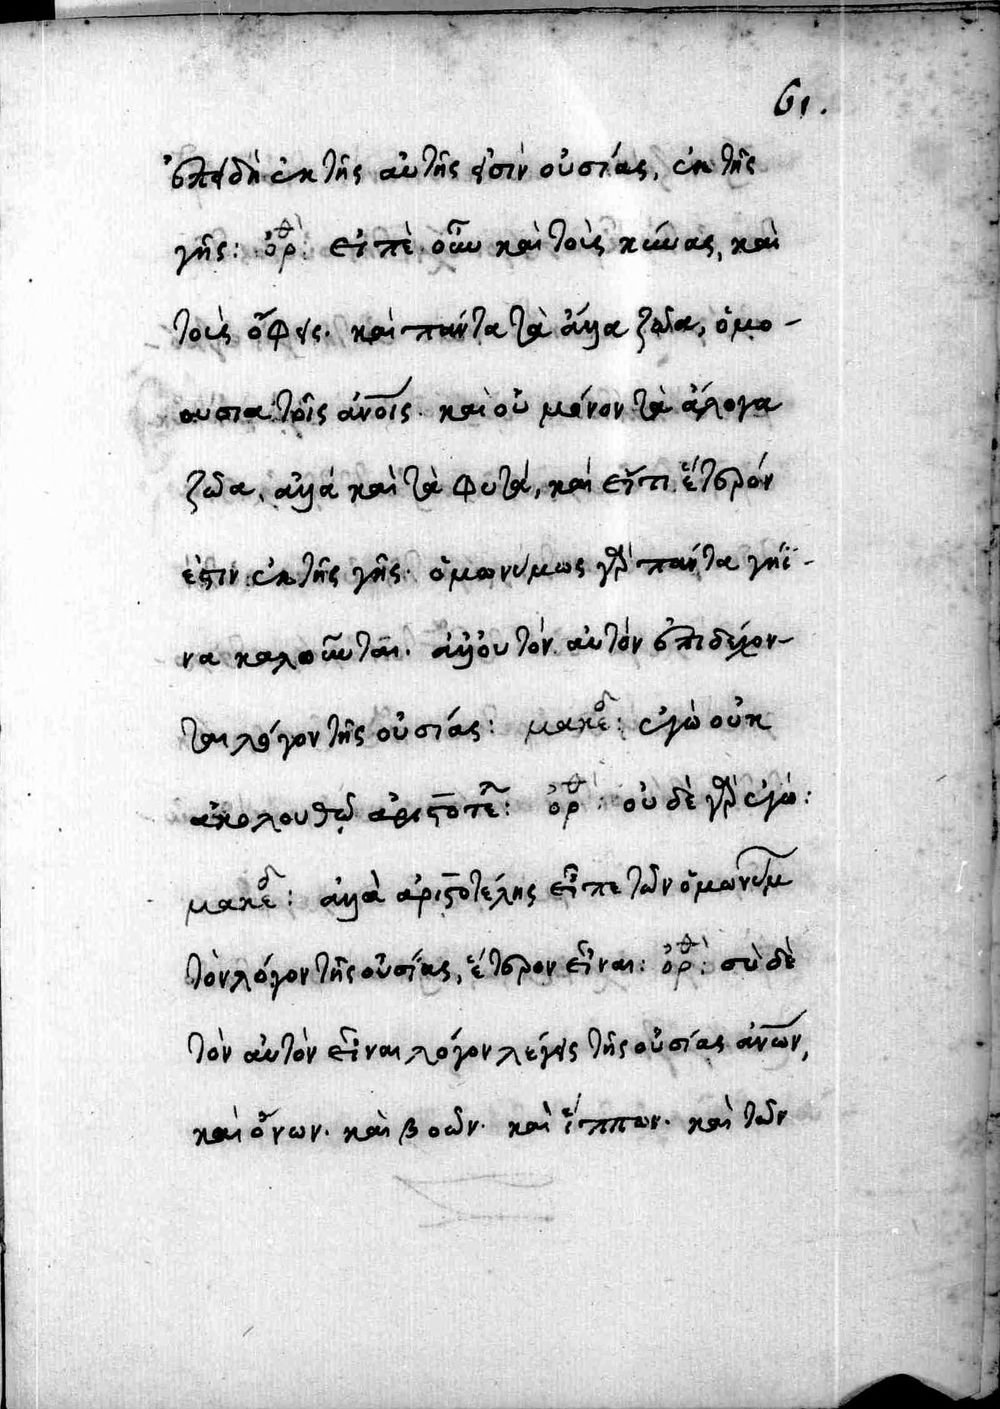 61.
ἐπειδὴ ἐκ τῆς αὐτῆς εἰσὶν οὐσίας, ἐκ τῆς
γῆς: ὀρθ: εἰπὲ οὖν καὶ τοὺς κύνας, καὶ
τοὺς ὄφεις. καὶ πάντα τὰ ἄλλα ζῶα, ὁμο-
ουσια τοῖς ἀνοις. καὶ οὐ μόνον τὰ ἄλογα
ζῶα, ἀλλά καὶ τὰ φυτά, καὶ εἴ τι ἕτερόν
ἐστιν ἐκ τῆς γῆς. ὁμωνύμως γὰρ πάντα γηΐ-
να καλοῦνται. ἀλλ' οὐ τὸν αὐτὸν ἐπιδέχον-
ται λόγον τῆς οὐσίας: μακεδ: ἐγὼ οὐκ
ἀκολουθῶ ἀριστοτελ: ὀρθ: οὐδὲ γὰρ ἐγώ:
μακεδ: ἀλλὰ ἀριστοτέλης εἶπε τῶν ὁμωνύμ
τὸν λόγον τῆς οὐσίας, ἕτερον εἶναι: ὀρθ: σὺ δὲ
τὸν αὐτὸν εἶναι λόγον λέγεις τῆς οὐσίας ἀνων,
καὶ ὄνων. καὶ βοῶν. καὶ ἵππων. καὶ τῶν